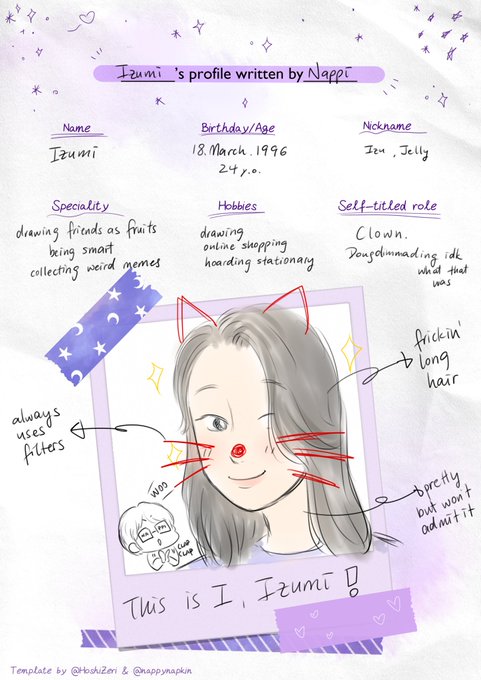 Izumi's profile written by Nappi
Name
Izumi
Birthday/Age
18. March. 1996
24 y.o.
Nickname
Izu, Jelly
Speciality
drawing friends as fruits
being smart
collecting weird memes
Hobbies
drawing
online shopping
hoarding stationary
Self-titled role
Clown.
Dougdimmading idk
what that
was
frickin'
long
hair
always
uses
filters
pretty
but won't
admit it
WOO
CLAP
CLAP
This is I, Izumi!
Template by @HoshiZeri & @nappynapkin